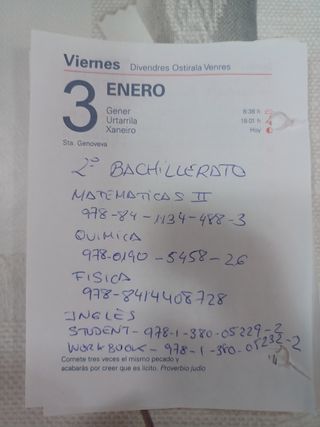 Viernes Divendres Ostirala Venres
3 ENERO
Gener 8:38 h
Urtarrila 18:01 h
Xaneiro Hoy
Sta. Genoveva
2º BACHILLERATO
MATEMATICAS II
978-84-1134-488-3
QUIMICA
978-0190-5458-26
FISICA
978-8414408728
INGLÈS
STUDENT - 978-1-380-05229-2
WORKBOOK - 978-1-380-05232-2
Comete tres veces el mismo pecado y
acabarás por creer que es lícito. Proverbio judío